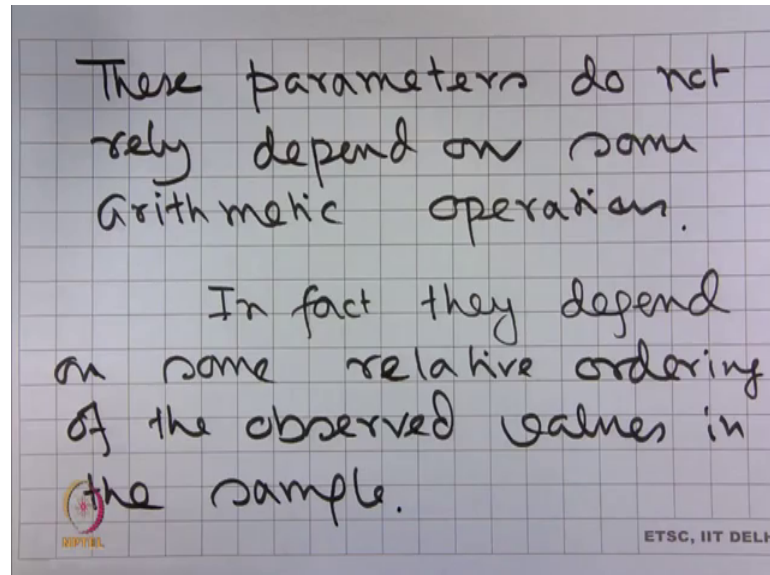 These parameters do not
rely depend on some
arithmetic operation.
In fact they depend
on some relative ordering
of the observed values in
the sample.
NPTEL
ETSC, IIT DELH